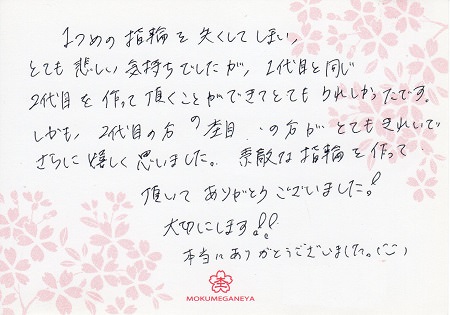 1つめの指輪を失くしてしまい、
とても悲しい気持ちでしたが、1代目と同じ
2代目を作って頂くことができてとてもうれしかったです。
しかも、2代目の方の杢目の方がとてもきれいで
さらに嬉しく思いました。素敵な指輪を作って
頂いてありがとうございました!
大切にします!!
本当にありがとうございました。(^^)
MOKUMEGANEYA